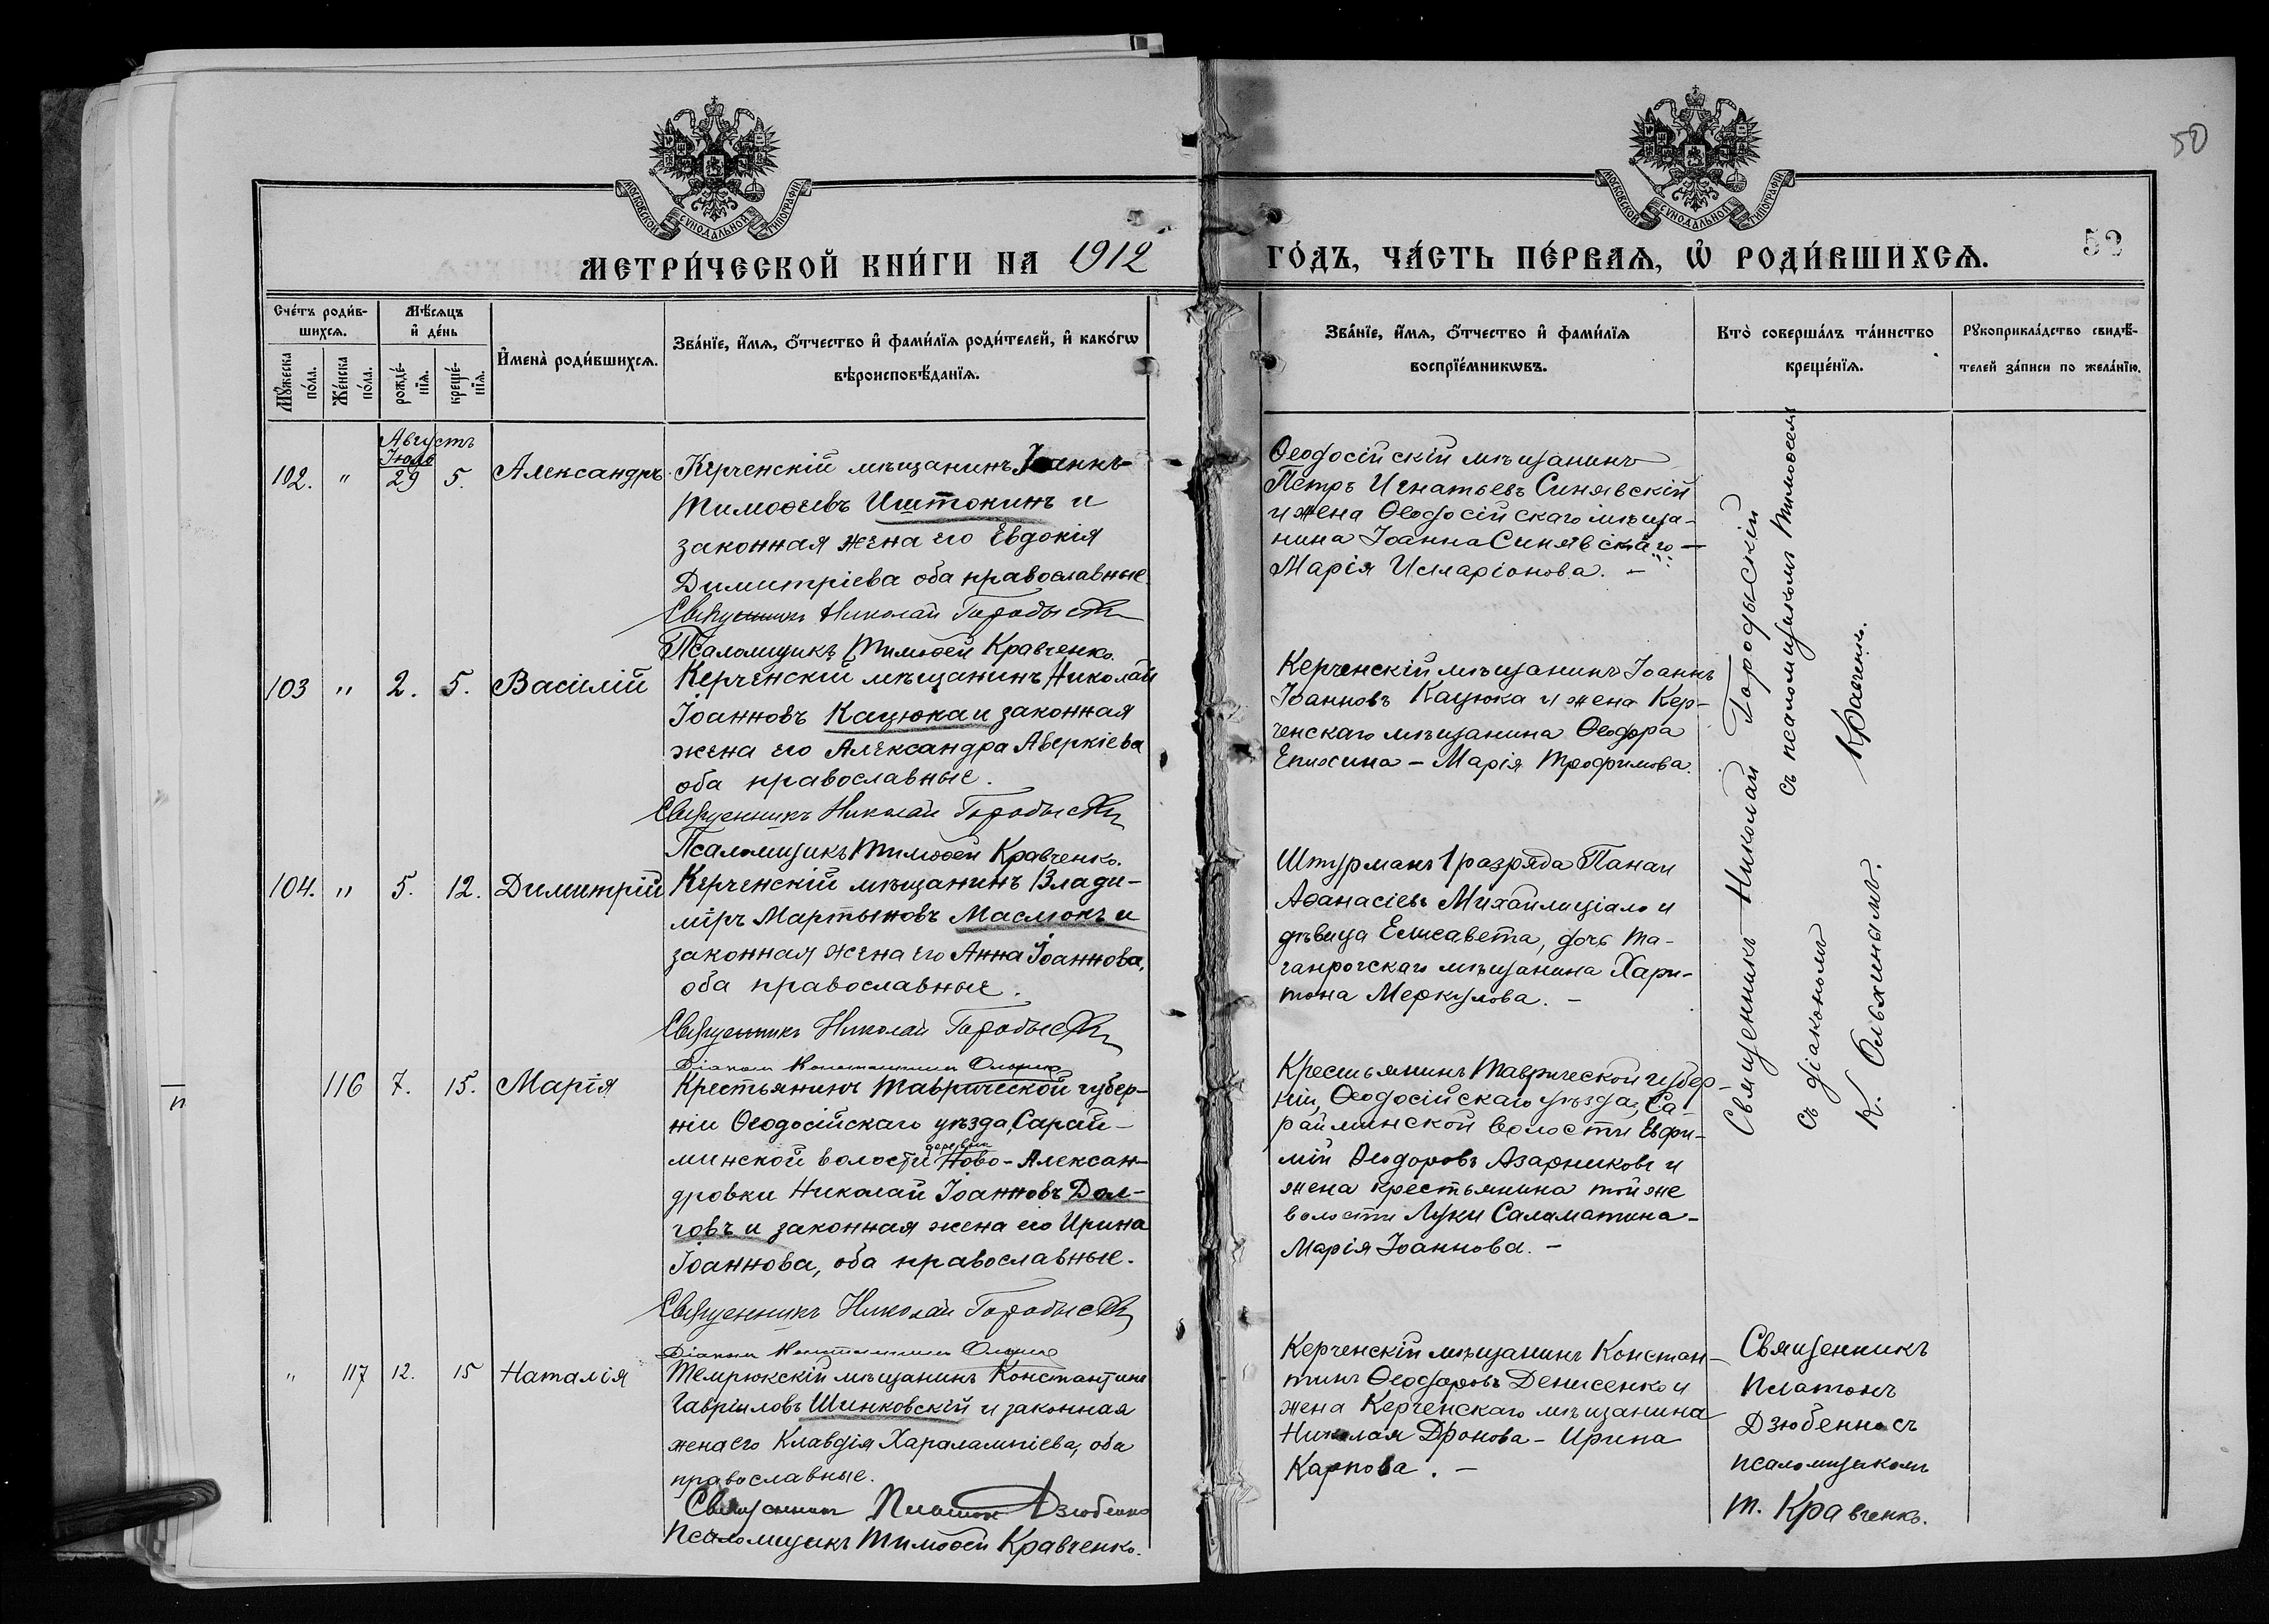 50
МОСКОВСКОЙ СѴНОДАЛЬНОЙ ТИПОГРАФІИ
МОСКОВСКОЙ СѴНОДАЛЬНОЙ ТИПОГРАФІИ
МЕТРИ́ЧЕСКОЙ КНИ́ГИ НА 1912
ГО́ДЪ, ЧА́СТЬ ПЕ́РВАѦ, Ѡ҆ РОДИ́ВШИХСѦ.
52
Сче́тъ роди́в-
шихсѧ.
Мꙋ́жеска
по́ла.
Же́нска
по́ла.
Мѣ́сѧцъ
и҆ де́нь
рожде́-
нїѧ.
креще́-
нїѧ.
И҆мена̀ роди́вшихсѧ.
Зва́нїе, и҆́мѧ, ѻ҆́тчество и҆ фами́лїѧ роди́телей, и҆ како́гѡ
вѣроисповѣ́данїѧ.
Зва́нїе, и҆́мѧ, ѻ҆́тчество и҆ фами́лїѧ
воспрїе́мникѡвъ.
Кто̀ соверша́лъ та́инство
креще́нїѧ.
Рꙋкоприкла́дство свидѣ́-
телей за́писи по жела́нїю.
Августъ
Іюль
102. " 29 5. Александръ.
Керченскій мѣщанинъ Іоаннъ
Тимофеевъ Иштокинъ и
законная жена его Евдокія
Димитріева оба православные.
Священникъ Николай Городыскій
Псаломщикъ Тимофей Кравченко.
Ѳеодосійскій мѣщанинъ
Петръ Игнатьевъ Синявскій
и жена Ѳеодосійскаго мѣща-
нина Іоанна Синявскаго —
Марія Иларіонова. —
103 " 2. 5. Василій
Керченскій мѣщанинъ Николай
Іоанновъ Кацюка и законная
жена его Александра Аверкіева
оба православные.
Священникъ Николай Городыскій
Псаломщикъ Тимофей Кравченко.
Керченскій мѣщанинъ Іоаннъ
Іоанновъ Кацюка и жена Кер-
ченскаго мѣщанина Ѳеодора
Епихина — Марія Трофимова.
104. " 5. 12. Димитрій
Керченскій мѣщанинъ Влади-
міръ Мартыновъ Маслюкъ и
законная жена его Анна Іоаннова,
оба православные.
Священникъ Николай Городыскій
Діаконъ Константинъ
Штурманъ 1 разряда Панаи
Аѳанасіевъ Михайлиціало и
дѣвица Елисавета, дочь та-
ганрогскаго мѣщанина Хари-
тона Меркулова. —
116 7. 15. Марія
Крестьянинъ Таврической губер-
ніи Ѳеодосійскаго уѣзда, Сарай-
минской волости деревни Ново-Алексан-
дровки Николай Іоанновъ Дол-
говъ и законная жена его Ирина
Іоаннова, оба православные.
Священникъ Николай Городыскій
Діаконъ Константинъ
Крестьянинъ Таврической губер-
ніи, Ѳеодосійскаго уѣзда, Са-
райминской волости Евфи-
мій Ѳеодоровъ Азарниковъ и
жена крестьянина той же
волости Луки Саламатина —
Марія Іоаннова. —
Священникъ Николай Городыскій
съ псаломщикомъ Тимофеемъ
Кравченко.
съ діакономъ
К. Ольхинымъ.
" 117 12. 15 Наталія
Темрюкскій мѣщанинъ Константинъ
Гавріиловъ Шинковскій и законная
жена его Клавдія Харалампіева, оба
православные.
Священникъ Платонъ Дзюбенко
Псаломщикъ Тимофей Кравченко.
Керченскій мѣщанинъ Констан-
тинъ Ѳеодоровъ Денисенко и
жена Керченскаго мѣщанина
Николая Дронова — Ирина
Карпова. —
Священникъ
Платонъ
Дзюбенко съ
псаломщикомъ
Т. Кравченко.